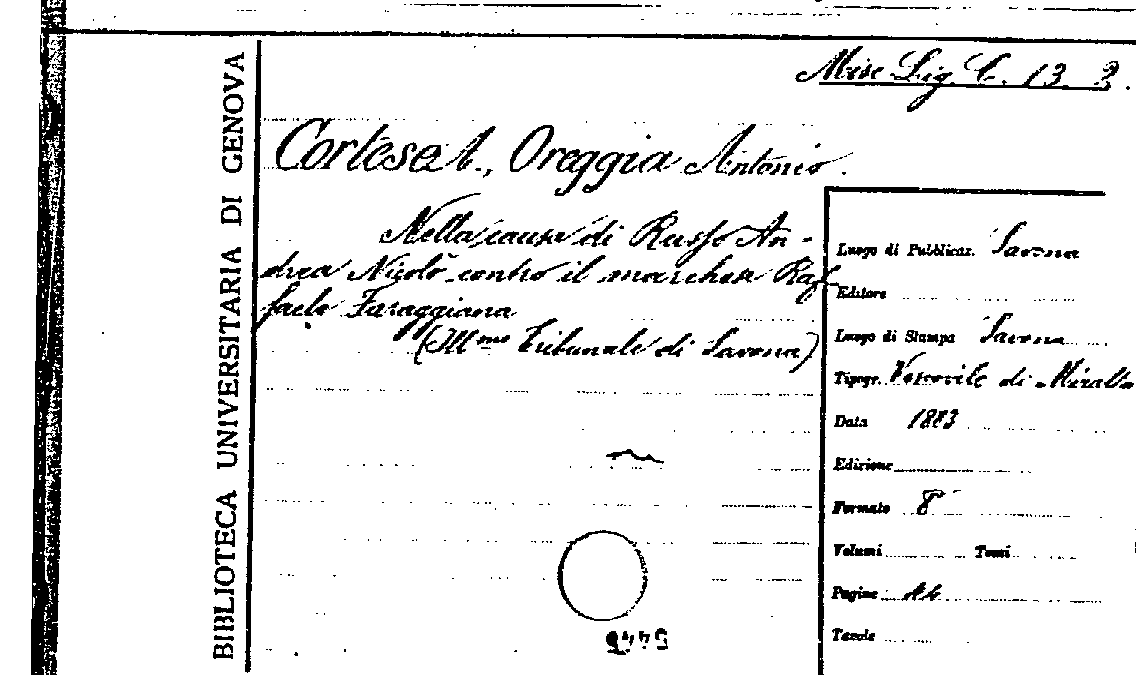 Misc Lig. C. 13. 2.
BIBLIOTECA UNIVERSITARIA DI GENOVA
Cortese A., Oreggia Antonio.
Nella causa di Russo An-
drea Nicolò contro il marchese Raf-
faele Faraggiana
(Ill.mo Tribunale di Savona)
Luogo di Pubblicaz. Savona
Editore
Luogo di Stampa Savona
Tipogr. Vescovile di Miralta
Data 1883
Edizione
Formato 8°
Volumi Tomi
Pagine
Tavole